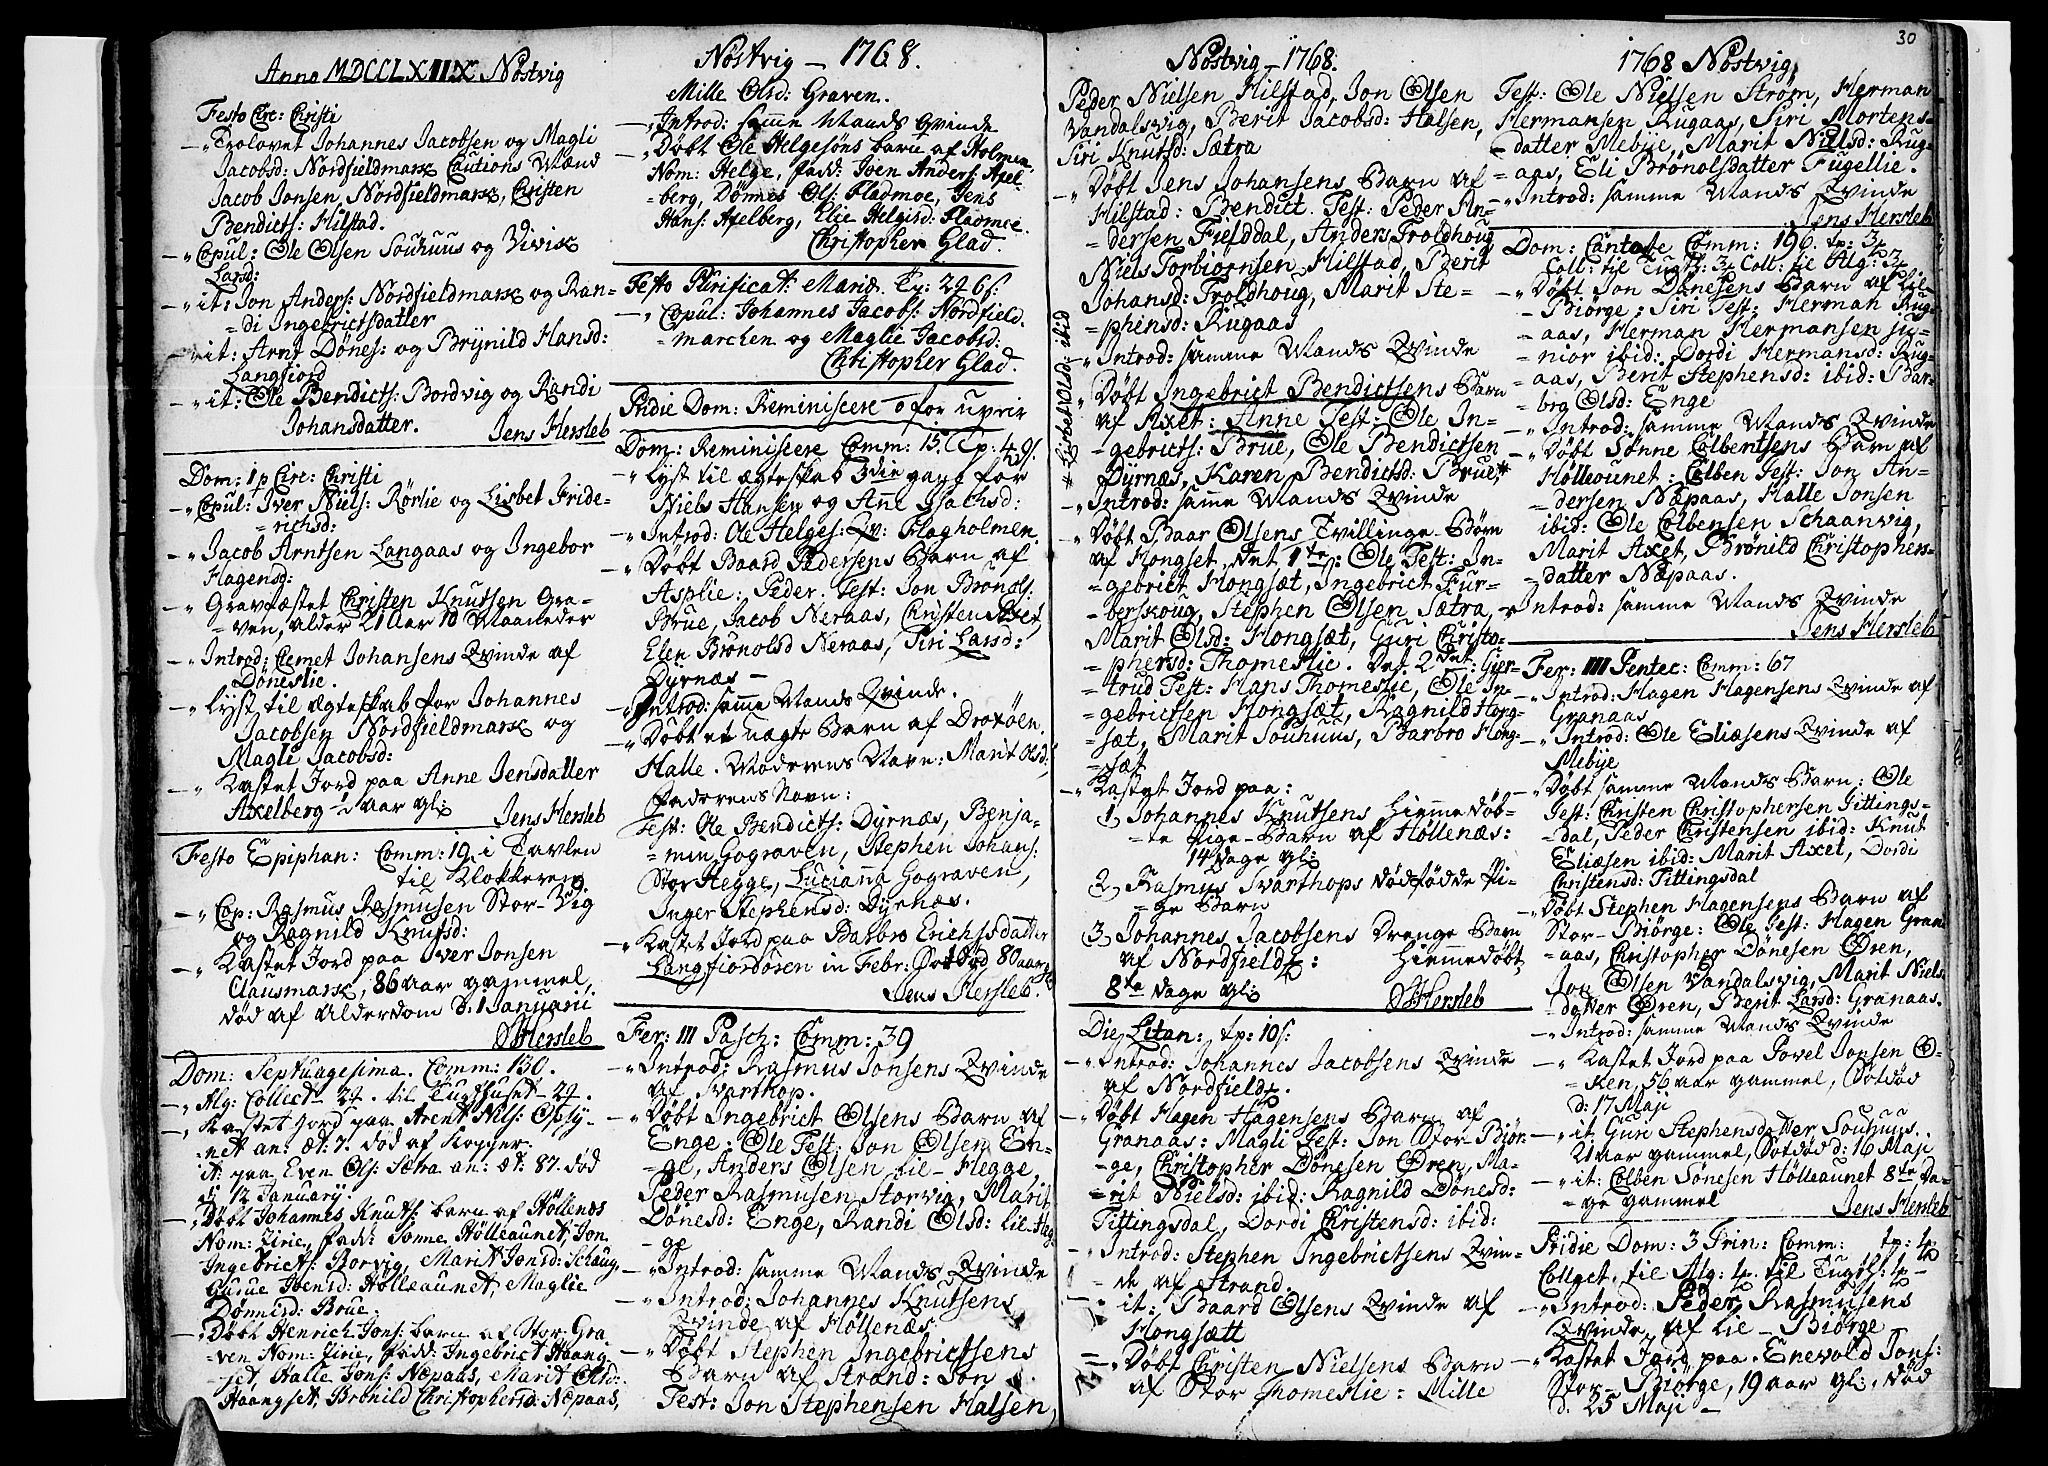 Anno MDCCLXIIX Nöstvig
Festo Circ: Christi
- " Trolovet Johannes Jacobsen og Magli
Jacobsd: Nordfieldmark Cautions Mænd
Jacob Jonsen, Nordfieldmark, Christen
Bendicts: Hilstad.
- " Copul: Ole Olsen Souhuus og Vivik
Larsd:
- " it: Jon Anders: Nordfieldmark og Ran-
= di Ingebrictsdatter
- " it: Arnt Dönes: og Brynild Hansd:
Langfiord
- " it: Ole Bendicts: Bordvig og Randi
Johansdatter. Jens Hersleb
Dom: 1 p Circ: Christi
- " Copul: Iver Niels: Rörlie og Lisbet Fride-
= richsd:
- " Jacob Arntsen Langaas og Ingebor
Hagensd:
- " Gravfæstet Christen Knutsen Gra-
= ven, alder 21 aar 10 Maaneder
- " Introd: Clemet Johansens Qvinde af
Döneslie.
- " Lyst til ægteskab for Johannes
Jacobsen Nordfieldmark og
Magli Jacobsd:
- " Kastet Jord paa Anne Jensdatter
Axelberg ½ aar gl: Jens Hersleb
Festo Epiphan: Comm: 19 i Tavlen
til Klokkeren
- " Cop: Rasmus Rasmusen Stor-Vig
og Ragnild Knutsd:
- " Kastet Jord paa Iver Jonsen
Clausmark, 86 aar gammel,
död af Alderdom d: 1 Januarii
Hersleb
Dom: Septuagesima. Comm: 130.
- " Alg: Collect - 24. til Tugthuset - 24.
- " Kastet Jord paa Arent Nils: Opsy-
= net an: æt: 7. död af Kopper.
it: paa Even Ols: Sætra an: æt: 87. död
d: 12 January.
- " Döbt Johannes Knuts: barn af Höllenæs
Nom: Zirie, fadd: Sönne Hölleaunet, Jon
Ingebrict: Borvig, Marit Jonsd: Schaug,
Gurue Joensd: Hölleaunet, Maglie
Dönnisd: Brue.
- " Döbt Henrich Jons: barn af Stor-Gra
= ven Nom: Zirie, fadd: Ingebrict Haang-
= set, Halle Jons: Næpaas, Marit Olsd:
Haangset, Brönild Christophersd: Næpaas,
Nöstvig - 1768.
Mille Olsd: Graven.
- " Introd: samme Mands Qvinde
- " Döbt Ole Helgesöns barn af Holmen.
Nom: Helge, fadd: Joen Anders: Axel-
= berg, Dönnes Ols: Fladmoe, Jens
Hans: Axelberg, Elie Helgisd: Fladmoe.
Christopher Glad.
Festo Purificat: Mariæ.
- " Copul: Johannes Jacobs: Nordfield.
marchen og Maglie Jacobsd:
Christopher Glad.
Pridie Dom: Reminiscere - 0 for uveir
Dom: Reminiscere Comm: 15. tp: 4.9s.
- " Lyst til ægteskab 3die gang for
Niels Hansen og Anne Isachsd:
- " Introd: Ole Helges: Qv: Flagholmen.
- " Döbt Baard Pedersens Barn af
Asplie: Peder. Test: Jon Brönols:
Brue, Jacob Neraas, Christen Axet,
Elen Brönolsd Neraas, Siri Larsd:
Dyrnæs -
- " Introd: samme Mands Qvinde.
- " Döbt et uægte Barn af Droxöen.
Halle. Moderens Navn: Marit Olsd:
Faderens Navn:
Test: Ole Bendicts: Dyrnæs, Benja-
= min Gograven, Stephen Johans:
Stor Hegge, Luciana Gograven,
Inger Stephensd: Dyrnæs.
- " Kastet Jord paa Barbro Erichsdatter
Langfiordören in Febr: 80 aar gl:
Jens Hersleb.
Fer: III Pasch: Comm: 39
- " Introd: Rasmus Jonsens Qvinde
af Svarthop.
- " Döbt Ingebrict Olsens Barn af
Enge: Ole Test: Jon Olsen En-
= ge, Anders Olsen Lie-Hegge,
Peder Rasmusen Storvig, Marit
Dönesd: Enge, Randi Olsd: Lie-Heg-
= ge
- " Introd: samme Mands Qvinde
- " Introd: Johannes Knutsens
Qvinde af Höllenæs.
- " Döbt Stephen Ingebrictsens
Barn af Strand: Jon
Test: Jon Stephensen Halsen
Nöstvig - 1768.
Peder Nielsen Hilstad, Jon Olsen
Vandalsvig, Berit Jacobsd: Halsen,
Siri Knutsd: Sætra
- " Döbt Jens Johansens Barn af
Hilstad: Bendict. Test: Peder An-
= dersen Fielddal, Anders Troldhoug
Niels Torbiörnsen Hilstad, Berit
Johansd: Troldhoug, Marit Ste-
= phensd: Rugaas
- " Introd: samme Mands Qvinde
- " Döbt Ingebrict Bendictsens Barn
af Axet: Anne Test: Ole In-
= gebricts: Brue, Ole Bendictsen
Dyrnæs, Karen Bendictsd: Brue, #
# Lisbet Olsd: ibid
- " Introd: samme Mands Qvinde
- " Döbt Baar Olsens Tvillinge-Börn
af Hongset, det 1te: Ole Test: In-
= gebrict Hongsæt, Ingebrict Fur-
= berskoug, Stephen Olsen Sætra,
Marit Olsd: Hongsæt, Guri Christo-
= phersd: Thomeslie. Det 2det: Gier-
= trud Test: Hans Thomeslie, Ole In-
= gebrictsen Hongsæt, Ragnild Hong-
= sæt, Marit Souhuus, Barbro Hong-
= sæt
- " Kastet Jord paa:
1, Johannes Knutsens Hiemmedöb-
= te Pige-Barn af Höllenæs:
14 Dage gl:
2, Rasmus Svarthops dödfödde Pi-
= ge Barn
3, Johannes Jacobsens Drenge-Barn
af Nordfield: Hiemmedöbt,
8te Dage gl: Hersleb
Die Litan: tp: 10s.
- " Introd: Johannes Jacobsens Qvinde
af Nordfield.
- " Döbt Hagen Hagensens Barn af
Granaas: Magli Test: Jon Stor-Biör-
= ge, Christopher Dönesen Ören, Ma-
= rit Nielsd: ibid: Ragnild Dönesd:
Tittingsdal, Dordi Christensd: ibid:
- " Introd: Stephen Ingebrictsens Qvin-
= de af Strand.
- " it: Baard Olsens Qvinde af
Hongsætt
- " Döbt Christen Nielsens Barn
af Stor Thomeslie: Mille
30
1768 Nöstvig.
Test: Ole Nielsen Ström, Herman
Hermansen Rugaas, Siri Mortens-
= datter Mebye, Marit Nielsd: Rug-
= aas, Eli Brönolsdatter Fugellie.
- " Introd: samme Mands Qvinde
Jens Hersleb
Dom: Cantate Comm: 196. tp: 3
Coll: til Tugth: 3 Coll: til Alg: 3
- " Döbt Jon Dönesens Barn af Lil-
- Biörge: Siri Test: Herman Rug-
= aas, Herman Hermansen ju-
= nior ibid: Dordi Hermansd: Rug-
= aas, Berit Stephensd: ibid: Bar-
= bro Olsd: Enge
- " Introd: samme Mands Qvinde
- " Döbt Sönne Colbentsens Barn af
Hölleounet: Colben Test: Jon An-
= dersen Næpaas, Halle Jonsen
ibid: Ole Colbensen Schaanvig,
Marit Axet, Brönild Christophers-
= datter Næpaas.
- " Introd: samme Mands Qvinde
Jens Hersleb
Fer: III Pentec: Comm: 67
- " Introd: Hagen Hagensens Qvinde af
Granaas
- " Introd: Ole Eliæsens Qvinde af
Mebye
- " Döbt samme Mands Barn: Ole
Test: Christen Christophersen Tittings-
= dal, Peder Christensen ibid: Knut
Eliæsen ibid: Marit Axet, Dordi
Christensd: Tittingsdal
- " Döbt Stephen Hagensens Barn af
Stor-Biörge: Ole Test: Hagen Gran-
= aas, Christopher Dönesen Ören,
Jon Olsen Vandalsvig, Marit Niels-
Datter Ören, Berit Larsd: Granaas.
- " Introd: samme Mands Qvinde
- " Kastet Jord paa Povel Jonsen O-
= ken, 56 aar gammel, Sotdöd
d: 17 Maji
- " it: Guri Stephensdatter Souhuus.
21 aar gammel, Sotdöd d: 16 Maji
- " it: Colben Sönesen Hölleaunet 8te Da-
= ge gammel Jens Hersleb
Pridie Dom: 3 Trin: Comm: tp: 4
Collect. til Alg: 4. til Tugth: 4
- " Introd: Peder Rasmusens
Qvinde af Lie-Biörge
- " Kastet Jord paa Enevold Jons:
Stor-Biörge, 19 aar gl:, död
d. 25 Maji -